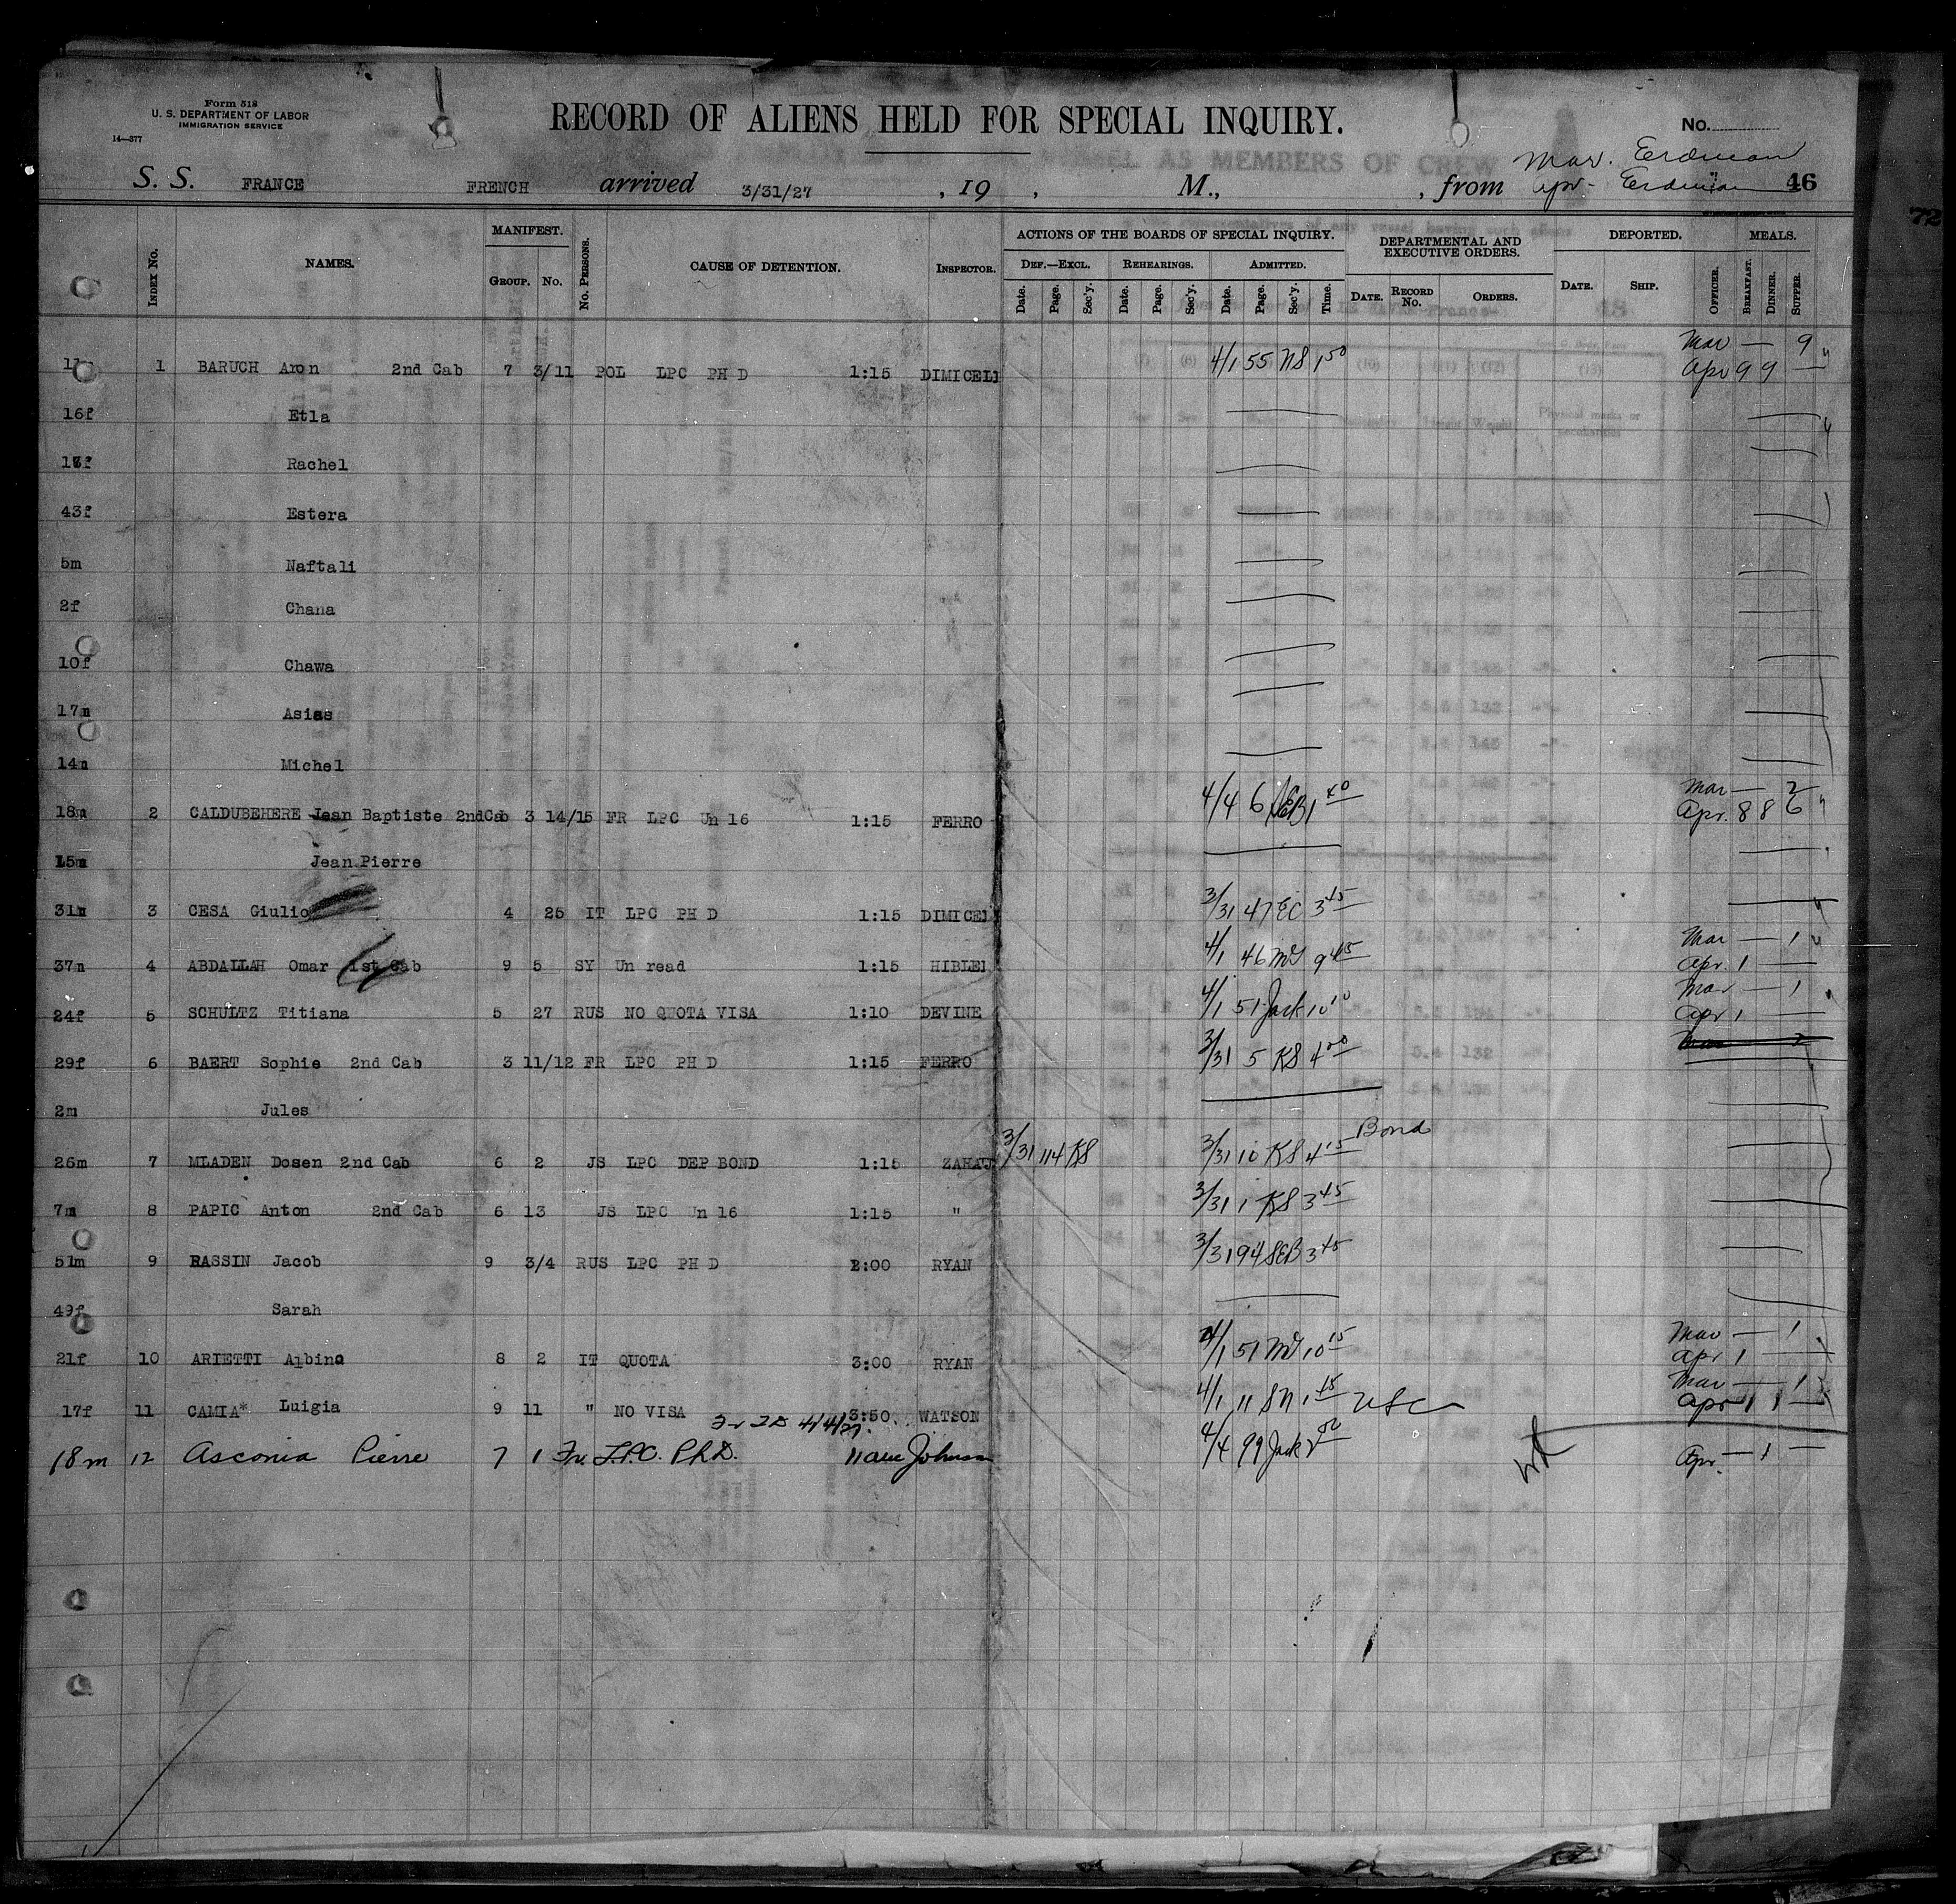 Form 518
U. S. DEPARTMENT OF LABOR
IMMIGRATION SERVICE
14—377
RECORD OF ALIENS HELD FOR SPECIAL INQUIRY.
No.
Mar. Erdman
S. S. FRANCE FRENCH arrived 3/31/27 , 19 , M., , from Apr- Erdman 46
72
INDEX No. NAMES. MANIFEST. GROUP. No. No. PERSONS. CAUSE OF DETENTION. INSPECTOR. ACTIONS OF THE BOARDS OF SPECIAL INQUIRY. DEF.—EXCL. Date. Page. Sec'y. REHEARINGS. Date. Page. Sec'y. ADMITTED. Date. Page. Sec'y. Time. DEPARTMENTAL AND EXECUTIVE ORDERS. DATE. RECORD No. ORDERS. DEPORTED. DATE. SHIP. MEALS. OFFICER. BREAKFAST. DINNER. SUPPER.
Mar — 9
1 BARUCH Aron 2nd Cab 7 3/11 POL LPC PH D 1:15 DIMICELI 4/1 55 NS 1 50 Apr 9 9 —
16f Etla
Rachel
43f Estera
5m Naftali
2f Chana
10f Chawa
17m Asias
14m Michel
Mar — 2
18m 2 CALDUBEHERE Jean Baptiste 2ndCab 3 14/15 FR LPC Un 16 1:15 FERRO 4/4 6 SEB 1 40 Apr. 8 8 6
15m Jean Pierre
31m 3 CESA Giulio 4 25 IT LPC PH D 1:15 DIMICEL 3/31 47 EC 3 45
Mar — 1
37m 4 ABDALLAH Omar 1st Cab 9 5 SY Un read 1:15 HIBLEI 4/1 46 McG 9 45 Apr. 1 —
Mar — 1
24f 5 SCHULTZ Titiana 5 27 RUS NO QUOTA VISA 1:10 DEVINE 4/1 51 Jack 10 10 Apr 1 —
29f 6 BAERT Sophie 2nd Cab 3 11/12 FR LPC PH D 1:15 FERRO 3/31 5 KS 4 00
2m Jules
26m 7 MLADEN Dosen 2nd Cab 6 2 JS LPC DEP BOND 1:15 3/31 114 KS 3/31 10 KS 4 15 Bond
7m 8 PAPIC Anton 2nd Cab 6 13 JS LPC Un 16 1:15 " 3/31 1 KS 3 45
51m 9 RASSIN Jacob 9 3/4 RUS LPC PH D 2:00 RYAN 3/31 94 SEB 3 45
49f Sarah
Mar — 1
21f 10 ARIETTI Albina 8 2 IT QUOTA 3:00 RYAN 4/1 51 McG 10 15 Apr 1 —
Mar — 1
17f 11 CAMIA* Luigia 9 11 " NO VISA 3:50 WATSON 4/1 11 SN 1 45 USC Apr 1 1 —
4/4/27.
18m 12 Asconia Pierre 7 1 Fr. L.P.C. Ph.D. 11am Johnson 4/4 99 Jack 2 00 Apr. — 1 —